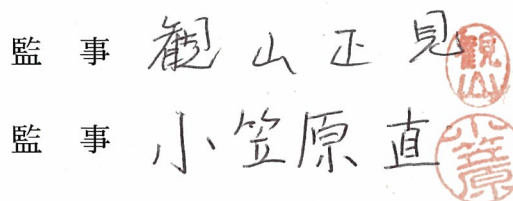 監 事 観山正見 観山
監 事 小笠原直 小笠原